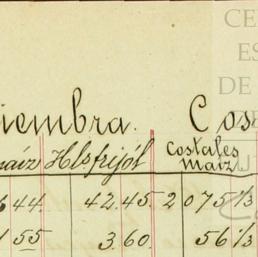 CE
ES
DE
iembra. Cos
maíz Hlsfrijól Costales maíz
644. 42.45 2 075⅓
155 3.60. 56⅓